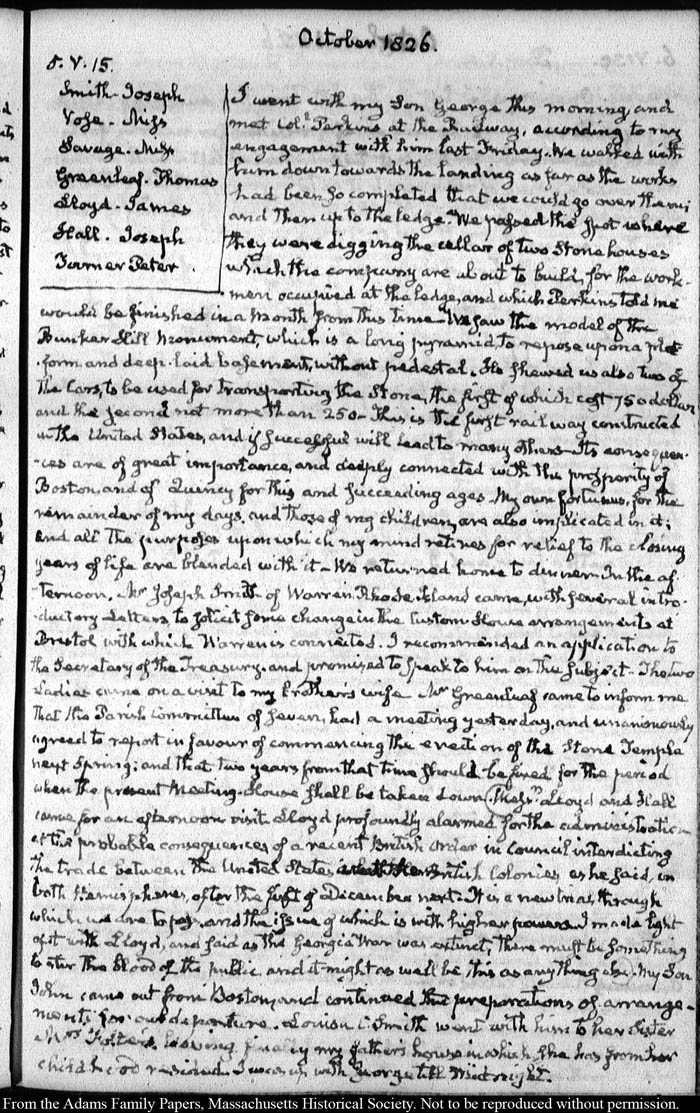 October 1826.
5. V. 15.
Smith. Joseph
Vose. Miss
Savage. Miss
Greenleaf. Thomas
Lloyd. James
Hall. Joseph
Turner Peter.
I went with my Son George this morning, and
met Coll. Perkins at the Railway, according to my
engagement with him last Friday. We walked with
him down towards the landing as far as the works
had been so completed that we could go over them;
and then up to the ledge. We passed the spot where
they were digging the cellar of two Stone houses
which the company are about to build, for the work-
men occupied at the ledge, and which Perkins told me
would be finished in a month from this time. We saw the model of the
Bunker Hill Monument, which is a long pyramid to repose upon a plat-
form and deep-laid basement, without pedestal. He shewed us also two of
the Cars, to be used for transporting the Stone, the first of which cost 750 dollars
and the second not more than 250. This is the first railway constructed
in the United States, and if successful will lead to many others. Its consequen-
ces are of great importance, and deeply connected with the prosperity of
Boston, and of Quincy for this and succeeding ages. My own fortunes, for the
remainder of my days, and those of my children, are also implicated in it;
and all the purposes upon which my mind relies for relief to the closing
years of life are blended with it. We returned home to dinner. In the af-
ternoon, Mr Joseph Smith of Warren Rhode-Island came, with several intro-
ductory Letters, to solicit some change in the Custom House arrangements at
Bristol with which Warren is connected. I recommended an application to
the Secretary of the Treasury; and promised to speak to him on the subject. The two
Ladies came on a visit to my brother's wife. Mr Greenleaf came to inform me
that the Parish Committee of seven, had a meeting yesterday, and unanimously
agreed to report in favour of commencing the erection of the Stone Temple
next Spring; and that two years from that time should be fixed for the period
when the present Meeting-House shall be taken down. Messrs Lloyd and Hall
came for an afternoon visit. Lloyd profoundly alarmed for the administration
at the probable consequences of a recent British Order in Council interdicting
the trade between the United States and the British Colonies, as he said, in
both Hemispheres, after the first of December next. It is a new trial, through
which we are to pass, and the issue of which is with higher powers. I made light
of it with Lloyd, and said as the Georgia War was extinct, there must be something
to stir the blood of the public and it might as well be this as any thing else. My Son
John came out from Boston, and continued the preparations of arrange-
ments for our departure. Louisa C. Smith went with him to her Sister
Mrs Foster's, leaving finally my father's house in which she has from her
childhood resided. I was up with George till Midnight.
From the Adams Family Papers, Massachusetts Historical Society. Not to be reproduced without permission.